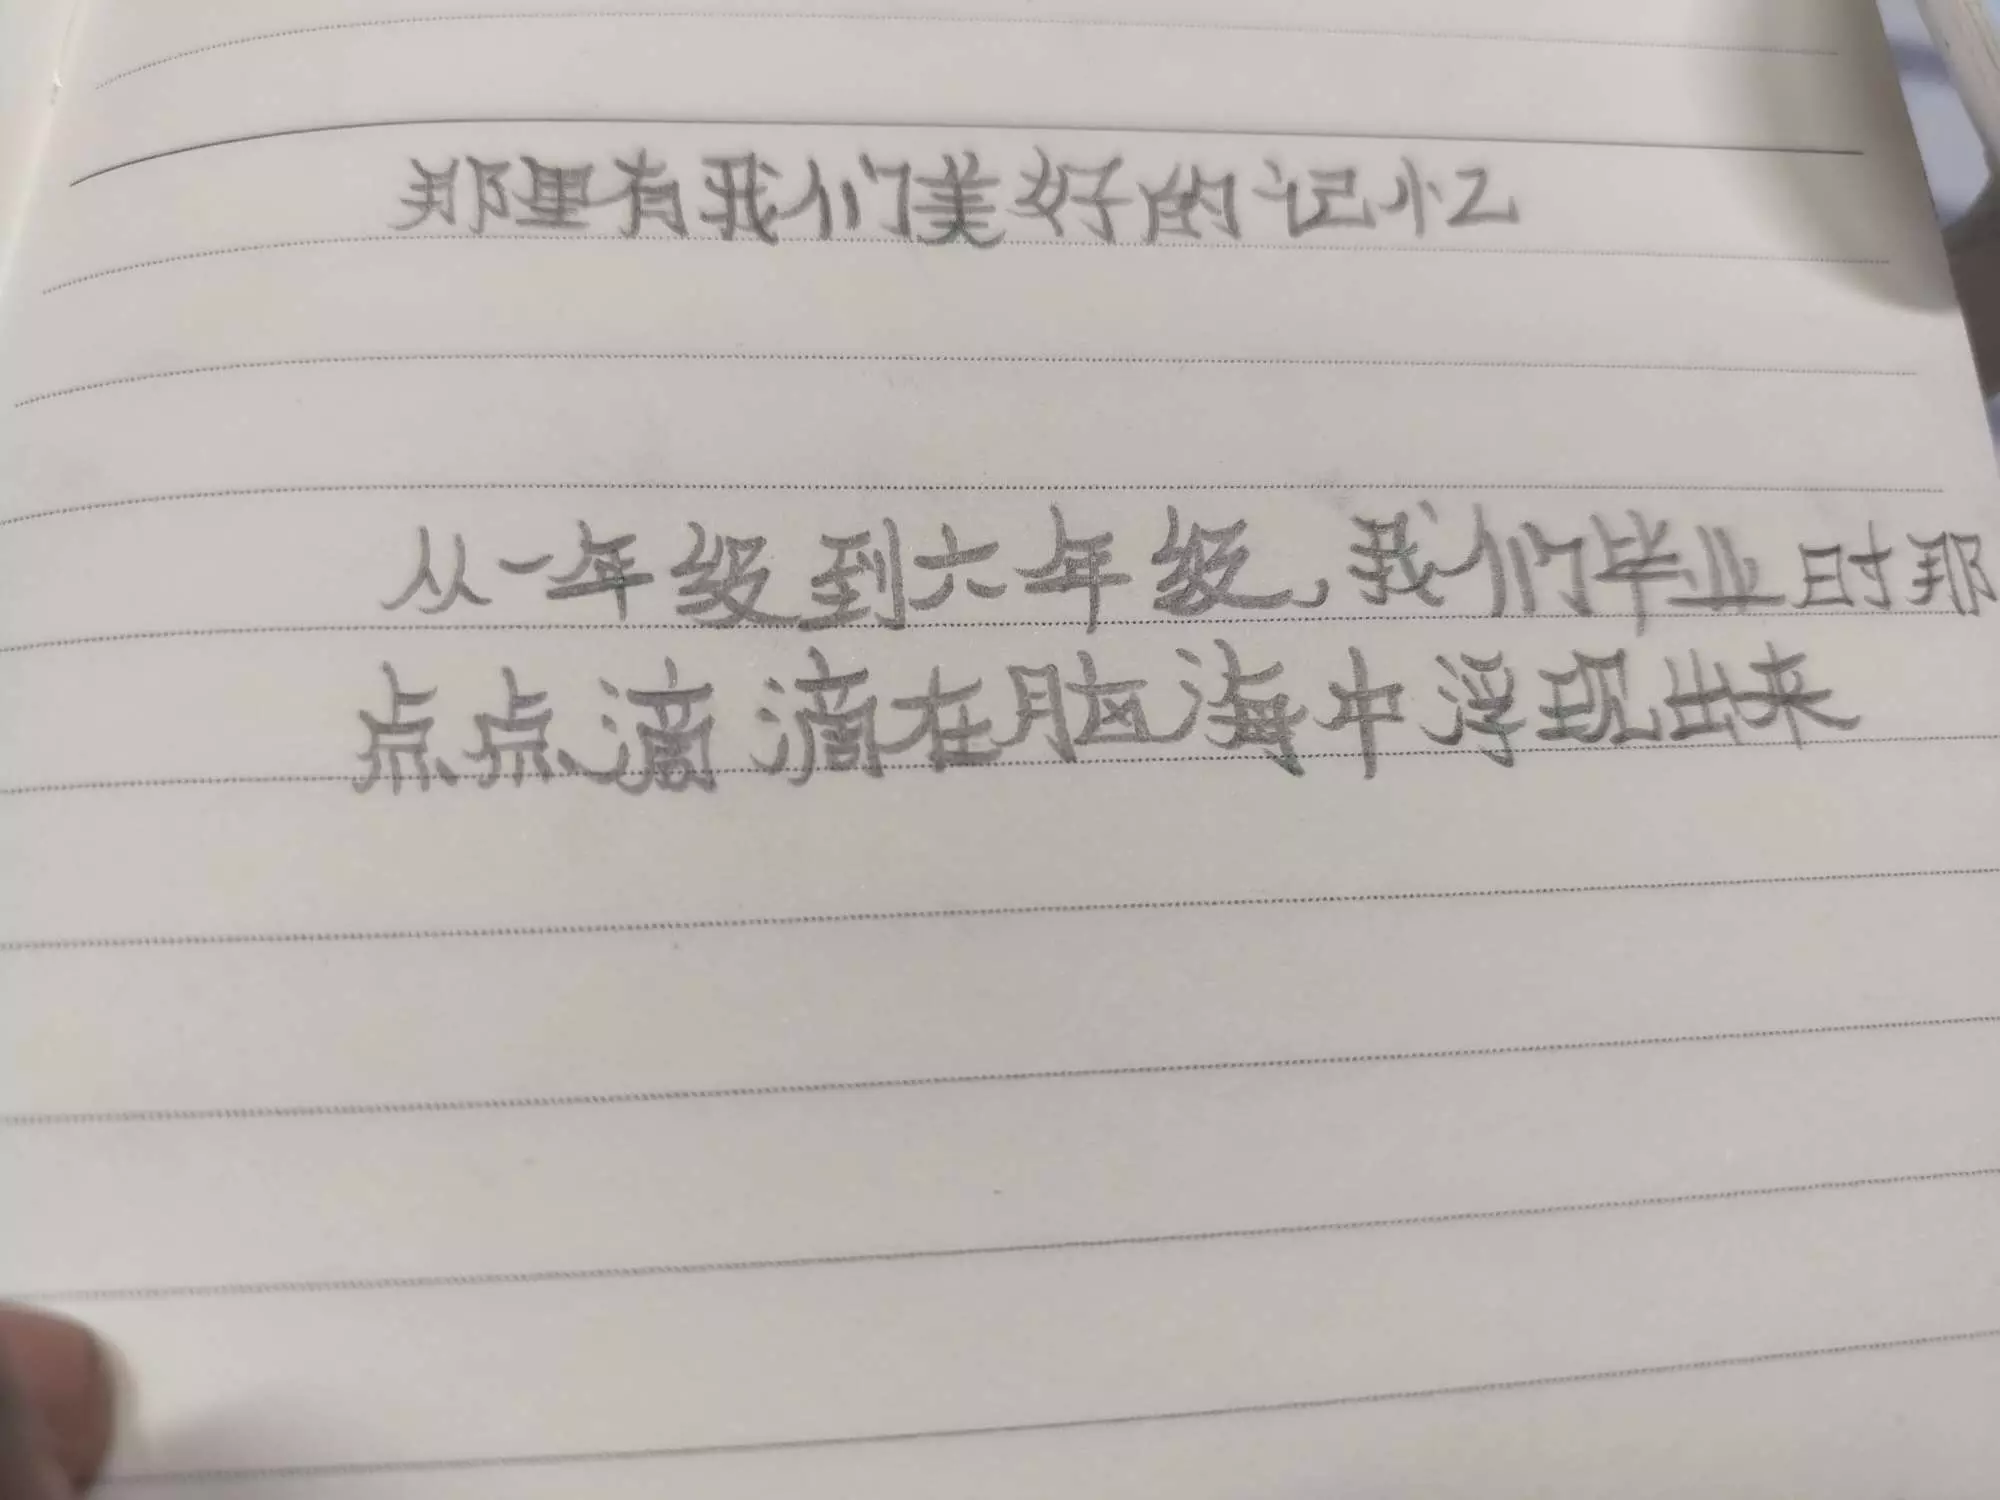 那里有我们美好的记忆
从一年级到六年级,我们毕业时那
点点滴滴在脑海中浮现出来